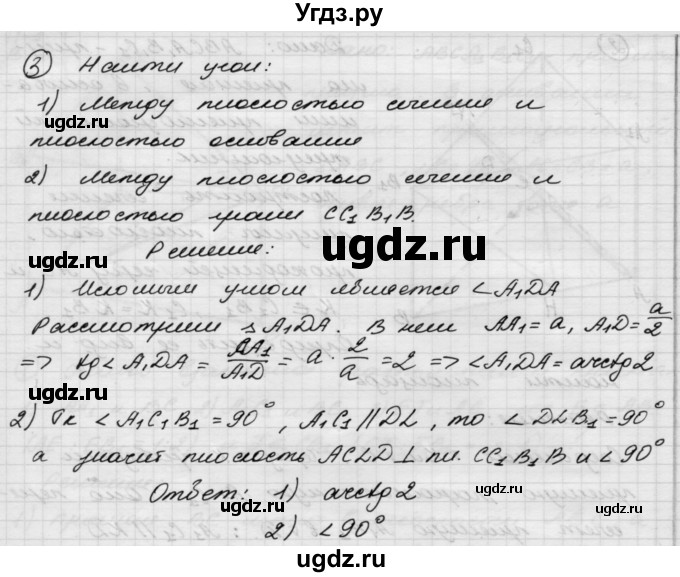 Угдз.ру
③ Найти угол:
1) Между плоскостью сечения и
плоскостью основания
ugdz.ru
ugdz.ru
2) Между плоскостью сечения и
плоскостью грани CC₁B₁B.
Решение:
ugdz.ru
ugdz.ru
ugdz.ru
1) Искомым углом является ∠A₁DA
Рассмотрим △A₁DA. В нем AA₁ = a, A₁D = a/2
=> tg∠A₁DA = AA₁/A₁D = a · 2/a = 2 => ∠A₁DA = arctg 2
ugdz.ru
ugdz.ru
2) Тк ∠A₁C₁B₁ = 90°, A₁C₁ || DL, то ∠DLB₁ = 90°
а значит плоскость ACLD ⊥ пл. CC₁B₁B и ∠ 90°
Ответ: 1) arctg 2
ugdz.ru
ugdz.ru
2) ∠ 90°
ugdz.ru